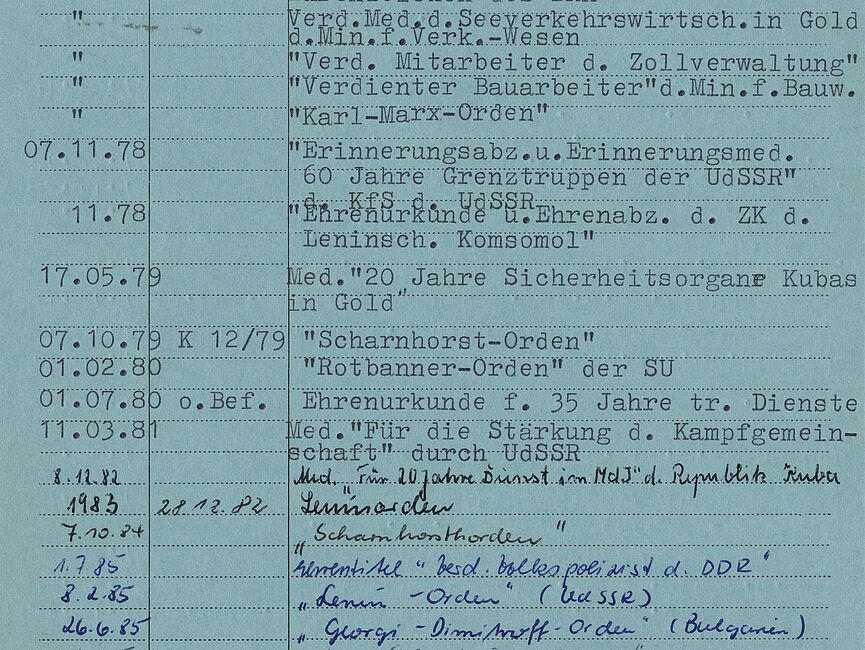 " Verd.Med.d.Seeverkehrswirtsch.in Gold
d.Min.f.Verk.-Wesen
" "Verd. Mitarbeiter d. Zollverwaltung"
" "Verdienter Bauarbeiter"d.Min.f.Bauw.
" "Karl-Marx-Orden"
07.11.78 "Erinnerungsabz.u.Erinnerungsmed.
60 Jahre Grenztruppen der UdSSR"
d. KfS d. UdSSR
11.78 "Ehrenurkunde u.Ehrenabz. d. ZK d.
Leninsch. Komsomol"
17.05.79 Med."20 Jahre Sicherheitsorgane Kubas
in Gold"
07.10.79 K 12/79 "Scharnhorst-Orden"
01.02.80 "Rotbanner-Orden" der SU
01.07.80 o.Bef. Ehrenurkunde f. 35 Jahre tr. Dienste
11.03.81 Med."Für die Stärkung d. Kampfgemein-
schaft" durch UdSSR
8.12.82 Med. "Für 20 Jahre Dienst im MdJ" d. Republik Kuba
1983 28.12.82 Leninorden
7.10.84 "Scharnhorstorden"
1.7.85 Ehrentitel "Verd. Volkspolizist d. DDR"
8.2.85 "Lenin-Orden" (UdSSR)
26.6.85 "Georgi-Dimitroff-Orden" (Bulgarien)